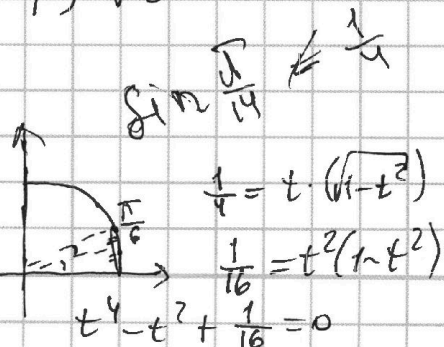 sin π/14 < 1/4
1/4 = t · (√(1-t²))
π/6
1/16 = t²(1-t²)
t⁴ - t² + 1/16 = 0